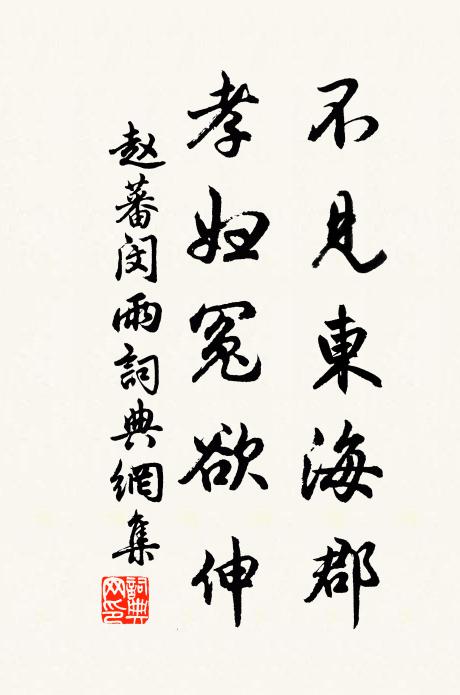 不見東海郡
孝妇冤欲伸
赵蕃闵雨詞典網集
詞典網印